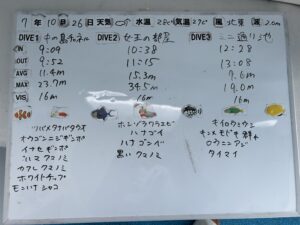 7年10月26日 天気 水温28℃ 気温27℃ 風 北東 波2.0m
DIVE1 中の島チャネル DIVE2 女王の部屋 DIVE3 ここ通りゃ
IN 9:09 10:38 12:28
OUT 9:52 11:15 13:08
AVG 11.4m 15.3m 7.6m
MAX 23.7m 34.5m 19.0m
VIS 16m 16m 16m
ツバメタナバタウオ ホンソメワケベラ キイロウミウシ
オウゴンニジギンポ ハナゴイ キンメモドキ群れ
イナセギンポ ハナゴンベ ロウニンアジ
クマノミ 黒いクマノミ タイマイ
カクレクマノミ
ホワイトチップ
モンハナシャコ